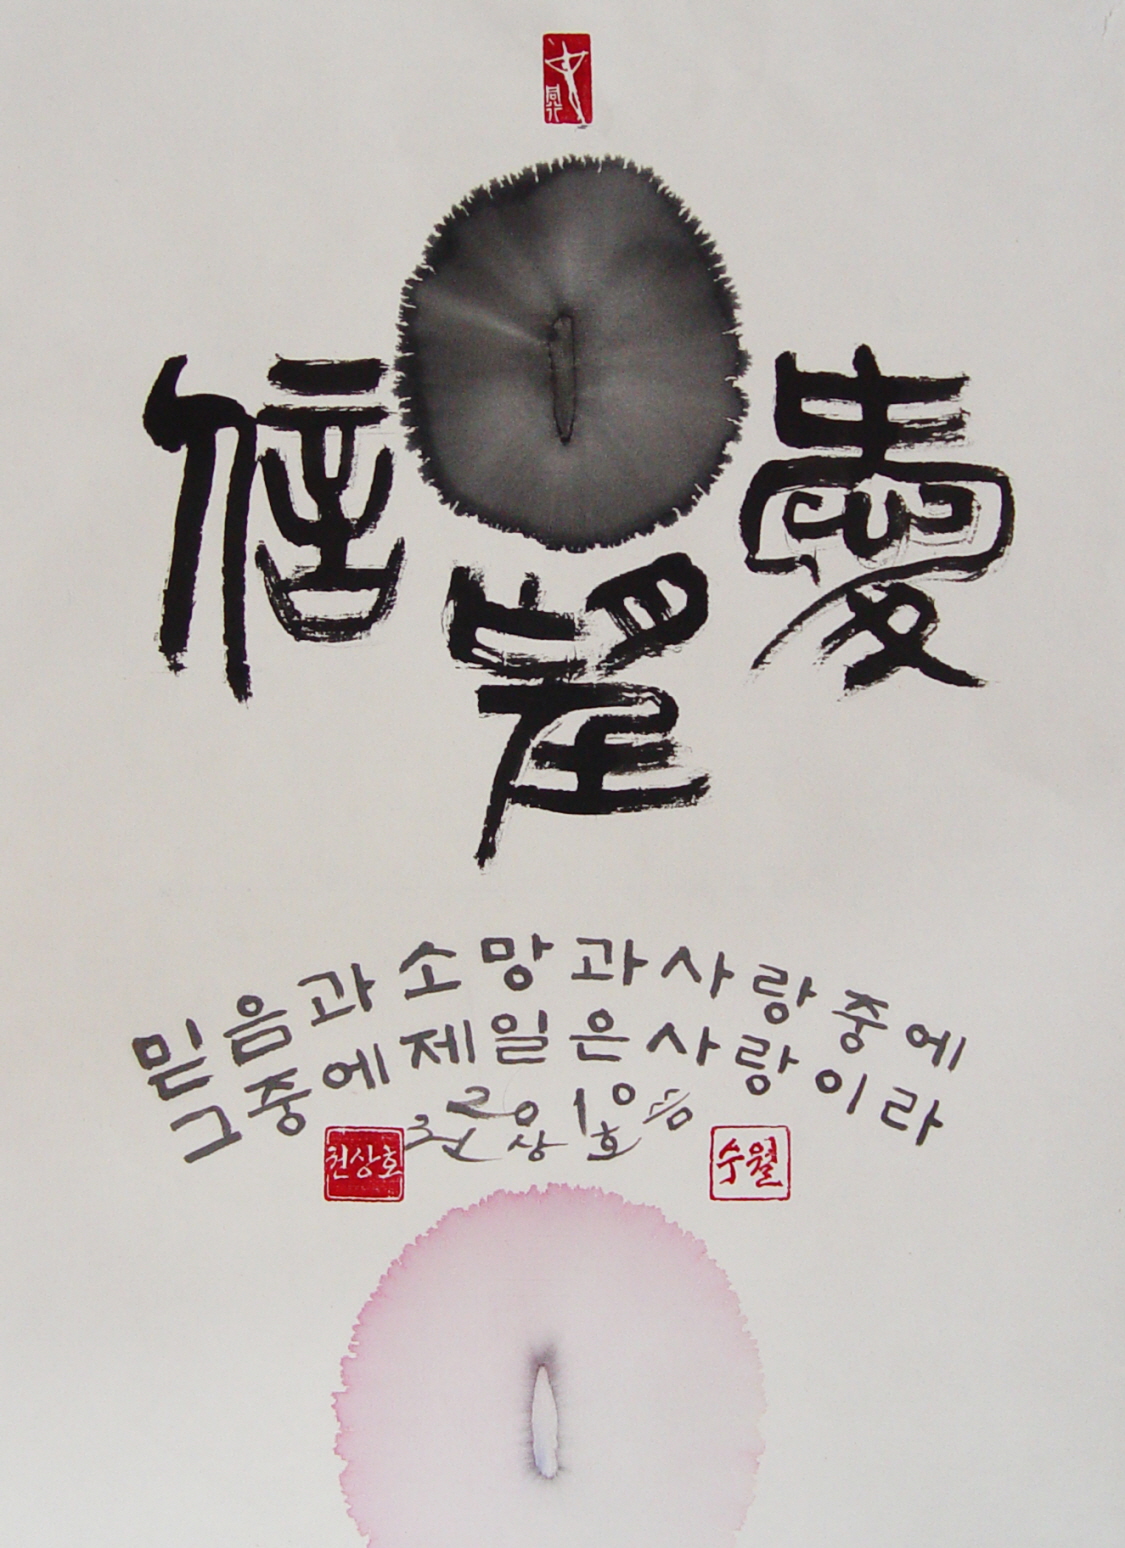 同行
信望愛
믿음과 소망과 사랑 중에
그 중에 제일은 사랑이라
2010 봄
천상호
천상호
수월